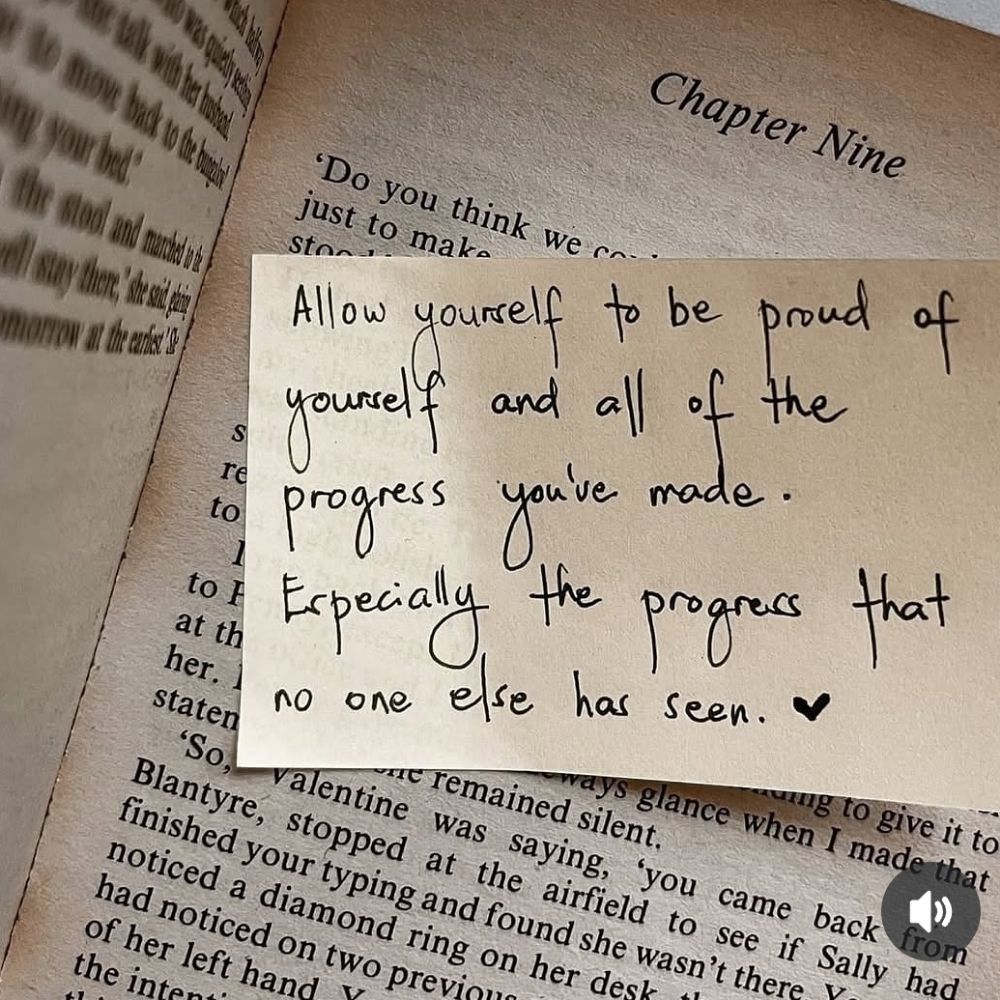 was quietly
talk with her husband
to move back to the bungalow
your bed.'
the stool and marched to the
stay there,' she said, going
morrow at the earliest.'
Chapter Nine
'Do you think we
just to make
Allow yourself to be proud of
yourself and all of the
progress you've made.
Especially the progress that
no one else has seen. ♥
s
re
to
I
to
at th
her.
staten
'So, remained silent. always glance when I made that
to give it to
Valentine was saying, 'you came back from
Blantyre, stopped at the airfield to see if Sally had
finished your typing and found she wasn't there.
noticed a diamond ring on her desk
had noticed on two previous
of her left hand
the